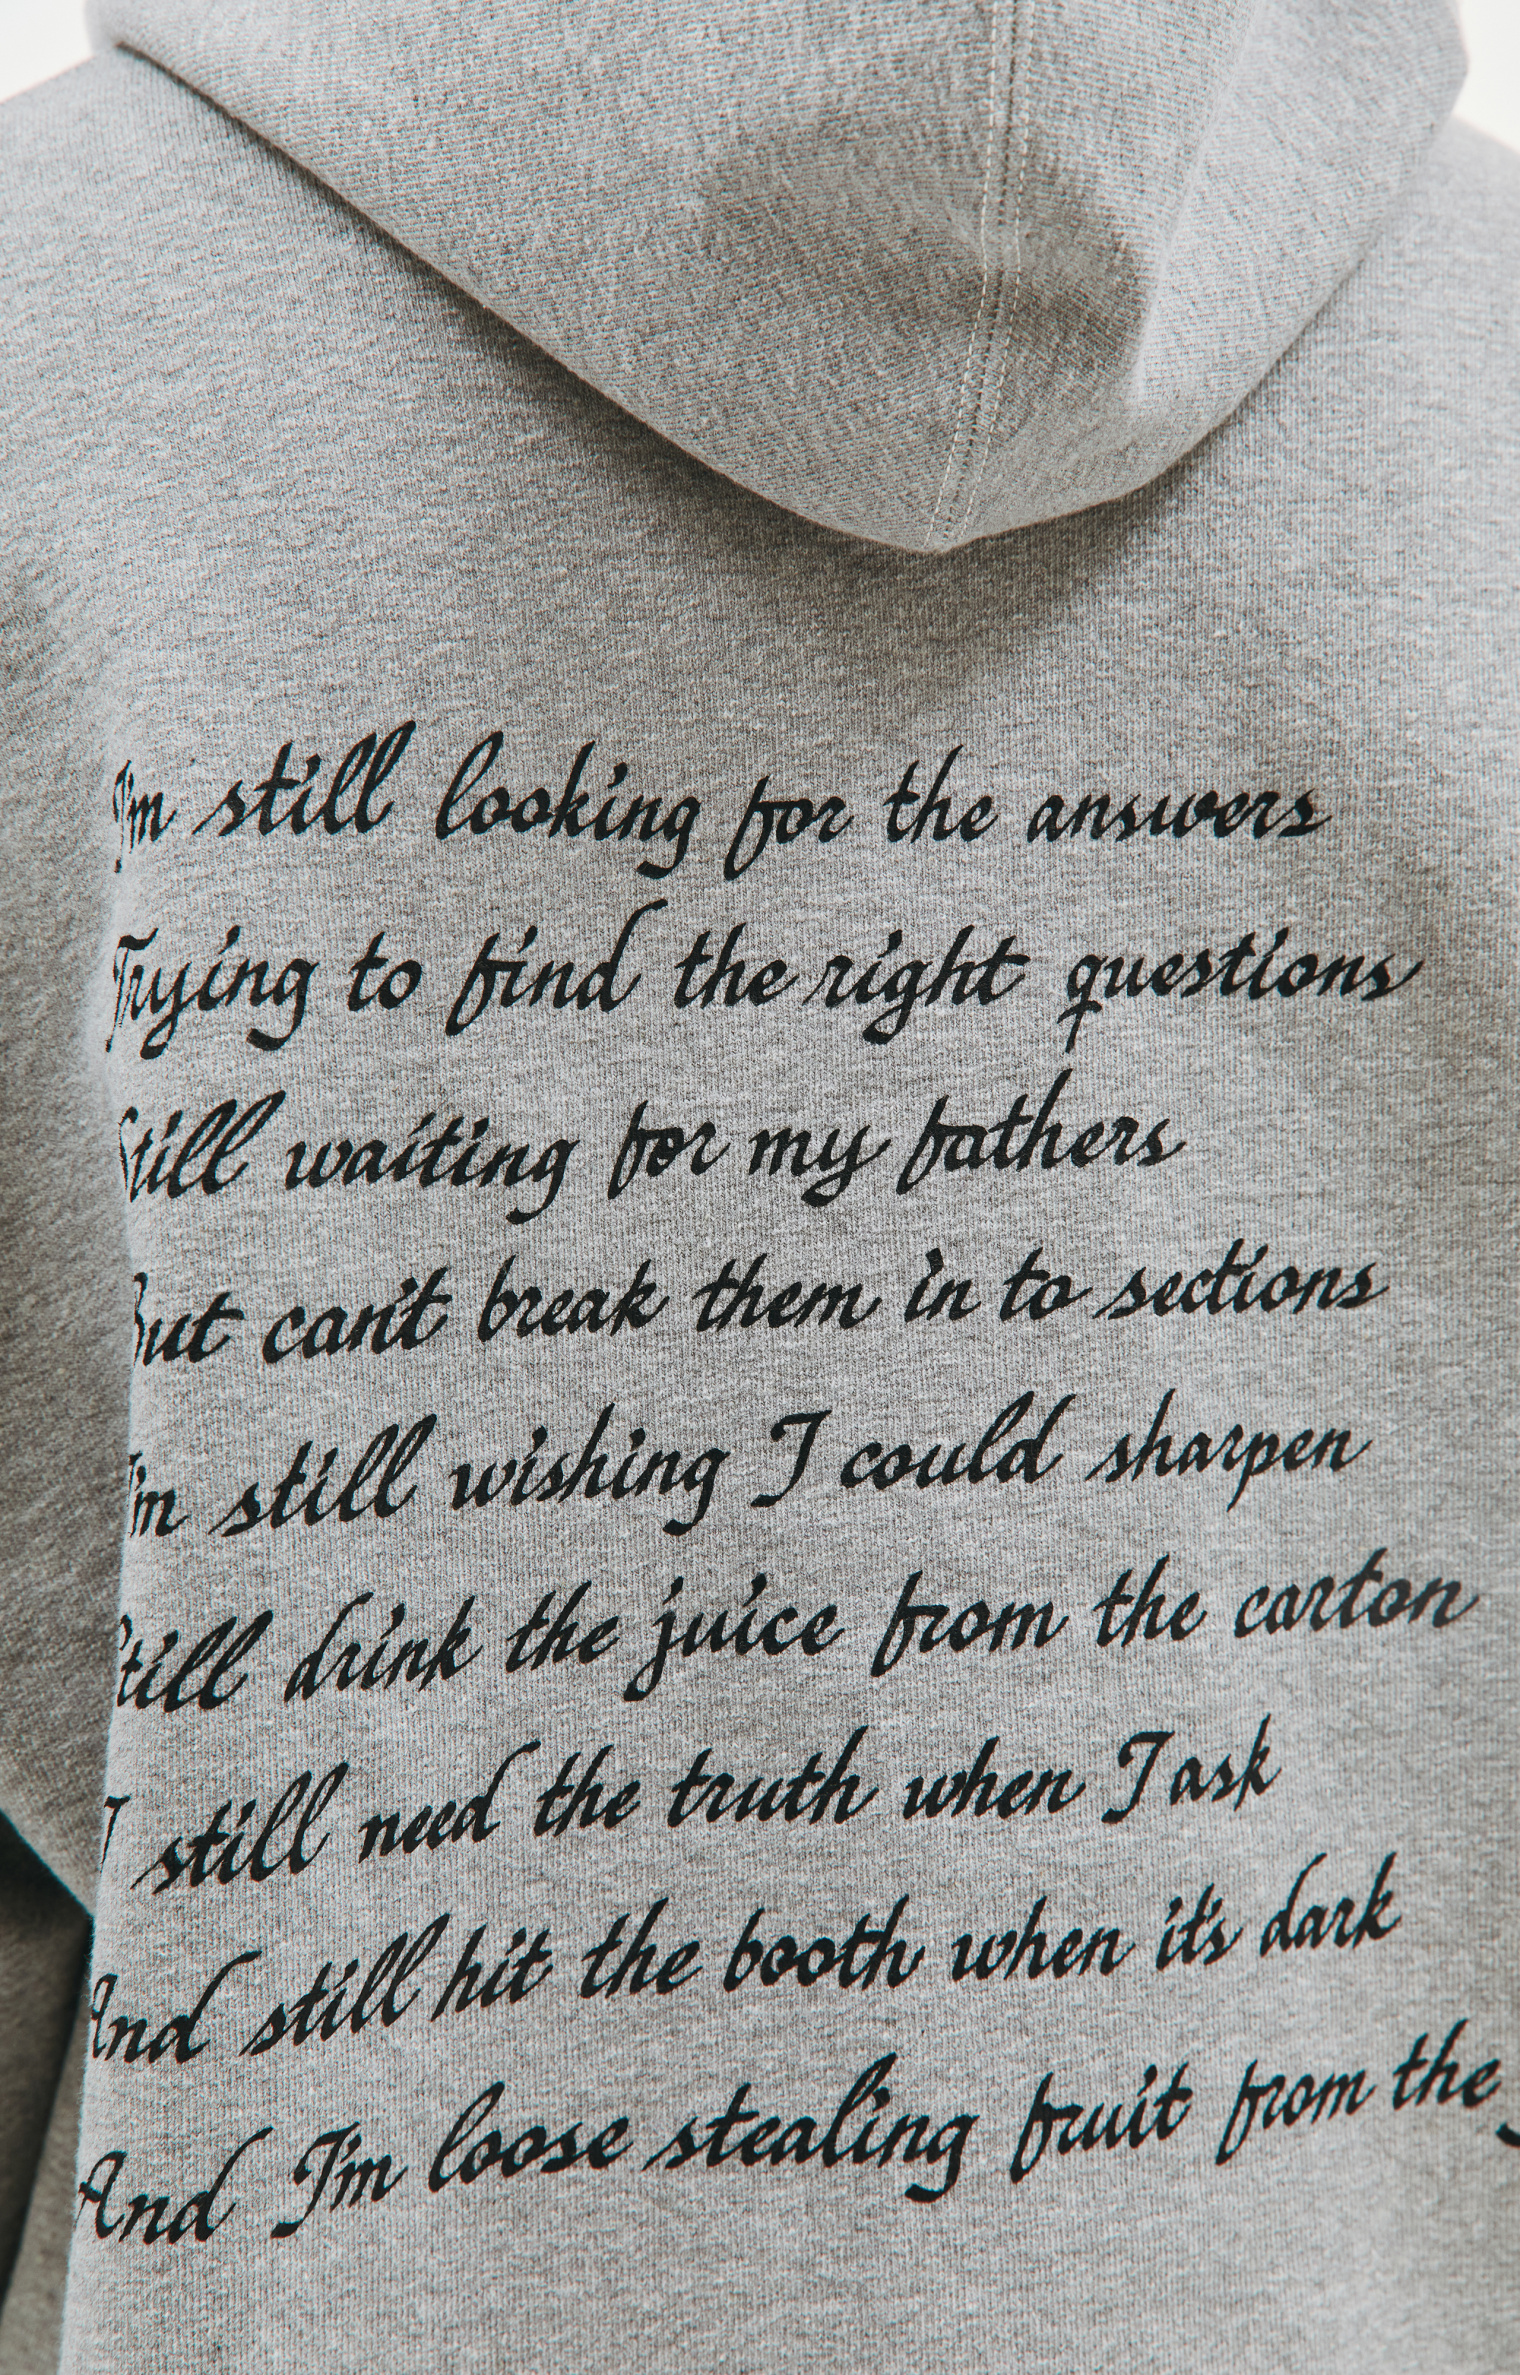 I'm still looking for the answers
Trying to find the right questions
Still waiting for my fathers
But can't break them in to sections
I'm still wishing I could sharpen
Still drink the juice from the carton
I still need the truth when I ask
And still hit the booth when it's dark
And I'm loose stealing fruit from the